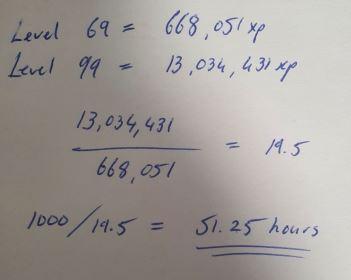 Level 69 = 668,051 xp
Level 99 = 13,034,431 xp
13,034,431
668,051
= 19.5
1000/19.5 = 51.25 hours